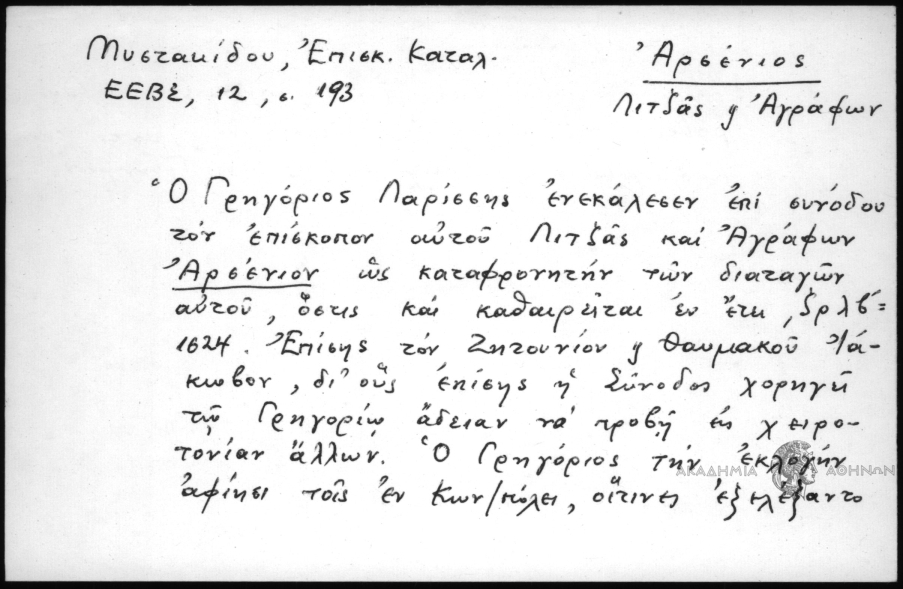 Μυστακίδου, Ἐπισκ. Καταλ.
ΕΕΒΣ, 12, σ. 193
Ἀρσένιος
Λιτζᾶς ϗ Ἀγράφων
Ὁ Γρηγόριος Λαρίσσης ἐνεκάλεσεν ἐπί συνόδου
τόν ἐπίσκοπον αὐτοῦ Λιτζᾶς καί Ἀγράφων
Ἀρσένιον ὡς καταφρονητήν τῶν διαταγῶν
αὐτοῦ, ὅστις καί καθαιρεῖται ἐν ἔτει ͵ζρλβ´=
1624. Ἐπίσης τόν Ζητουνίου ϗ Θαυμακοῦ Ἰά-
κωβον, δι' οὕς ἐπίσης ἡ Σύνοδος χορηγεῖ
τῷ Γρηγορίῳ ἄδειαν νά προβῇ εἰς χειρο-
τονίαν ἄλλων. Ὁ Γρηγόριος τήν ἐκλογήν
ἀφίησι τοῖς ἐν Κων/πόλει, οἵτινες ἐξελέξαντο
ΑΚΑΔΗΜΙΑ ΑΘΗΝΩΝ